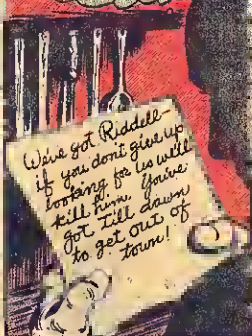 We've got Riddell-
if you don't give up
looking for us we'll
kill him. You've
got till dawn
to get out of
town!